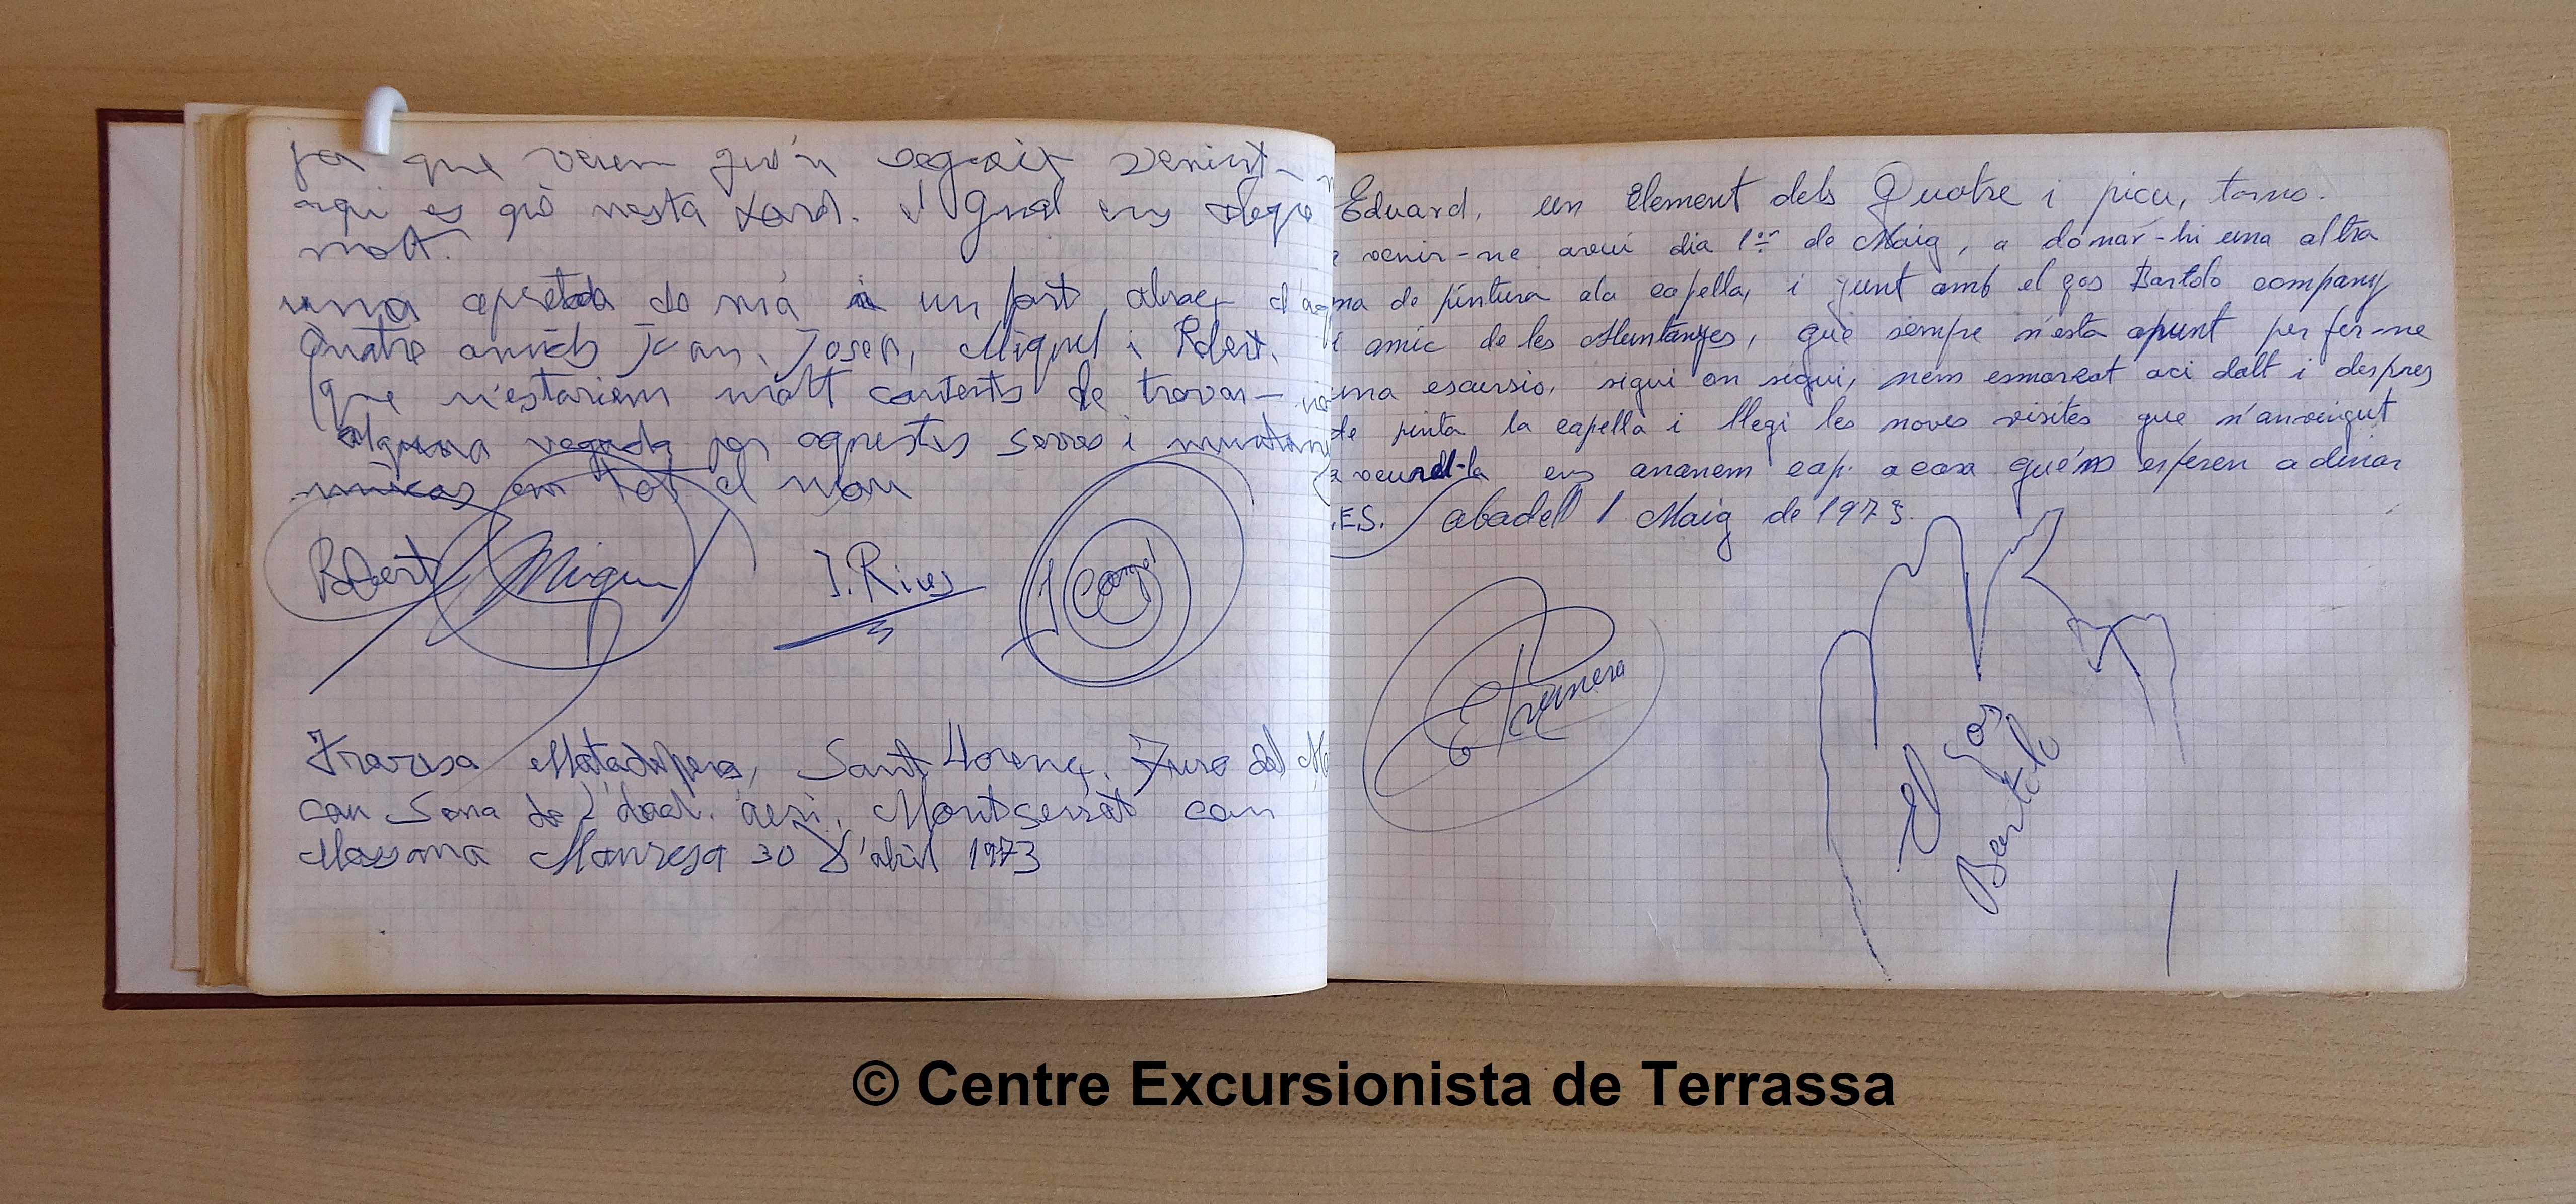 que verem qu'n segueix venint
aqui es qió nosta xard. Igual ens alegra
molt.
una apretada de mà i un fort abraç
Quatre amichs Juan, Josep, Miquel i Robert.
que n'estariem molt contents de trovar-
alguna vegada per aquestes serres i muntan
únicas em tot el mon
Robert Miquel J. Rives
Travesa Matadepera, Sant Llorenç.
can Sona de Montserrat can
Massana Manresa 30 d'abril 1973
Eduard, un Element dels Quatre i picu, torno.
venir-ne avui dia 1er de Maig, a donar-hi una altra
ma de pintura ala capella, i junt amb el gos Bartolo company
i amic de les Muntanyes, que sempre n'esta apunt per fer-ne
una escursio, sigui on sigui, nem esmorzat aci dalt i despres
de pinta la capella i llegi les noves visites que n'anvingut
a veurel-la ens ananem cap acasa qué'ns esperen a dinar
.E.S. Sabadell 1 Maig de 1973.
El Gos
Bartolo
© Centre Excursionista de Terrassa